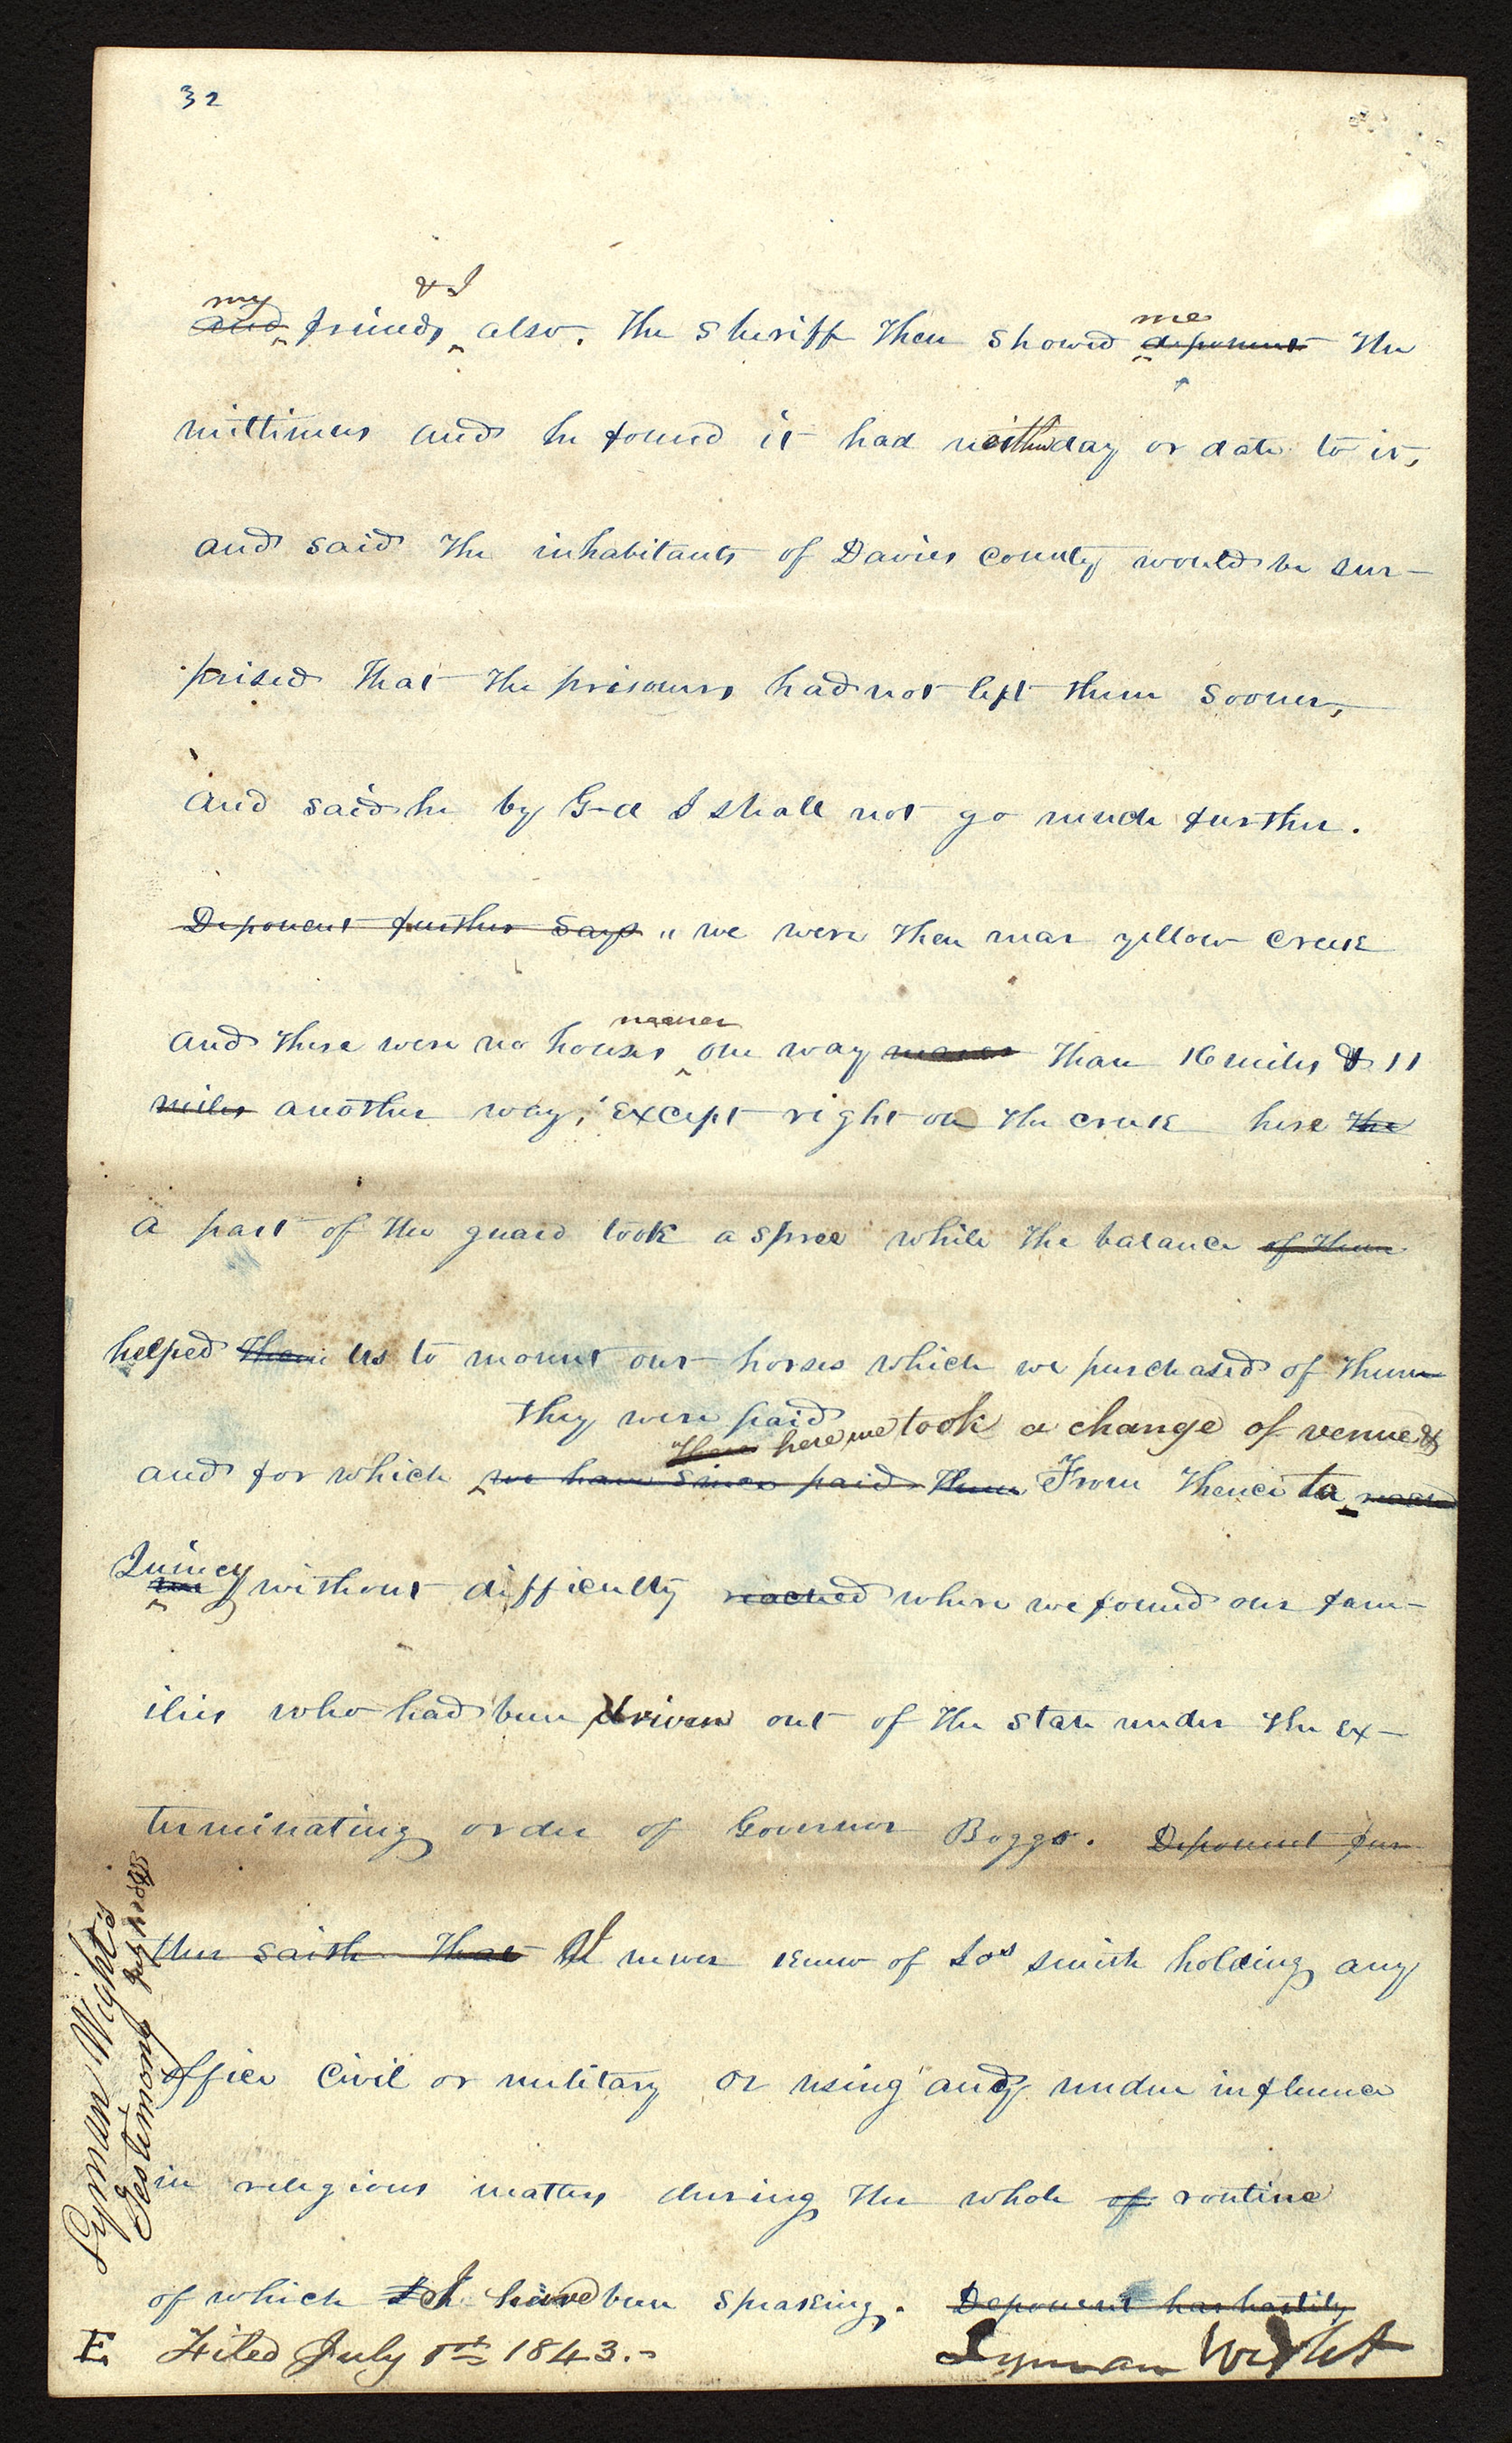 32
& I
my me
and friends also. the sheriff then showed deponent the
mittimus and he found it had neither day or date to it,
and said the inhabitants of Davies County would be sur-
prised that the prisoners had not left them sooner,
and said he by G-d I shall not go much further.
Deponent further says " we were then near yellow creek
nearer
and there were no houses one way nearer than 16 miles & 11
miles another way, except right on the creek here the
a part of the guard took a spree while the balance of them
helped them us to mount our horses which we purchased of them
they were paid
Then here we took a change of venue &
and for which we have since paid them From thence to
Quincy
without difficulty reached where we found our fam-
ilies who had been driven out of the state under the ex-
terminating order of Governor Boggs. Deponent fur
ther saith that I never knew of Jos smith holding any
office civil or military or using any undue influence
in religious matters during the whole of routine
of which I have been speaking. Deponent has hastily
Lyman Wight
E. Filed July 1st 1843.-
Lyman Wight's
Testimony July 1st 1843